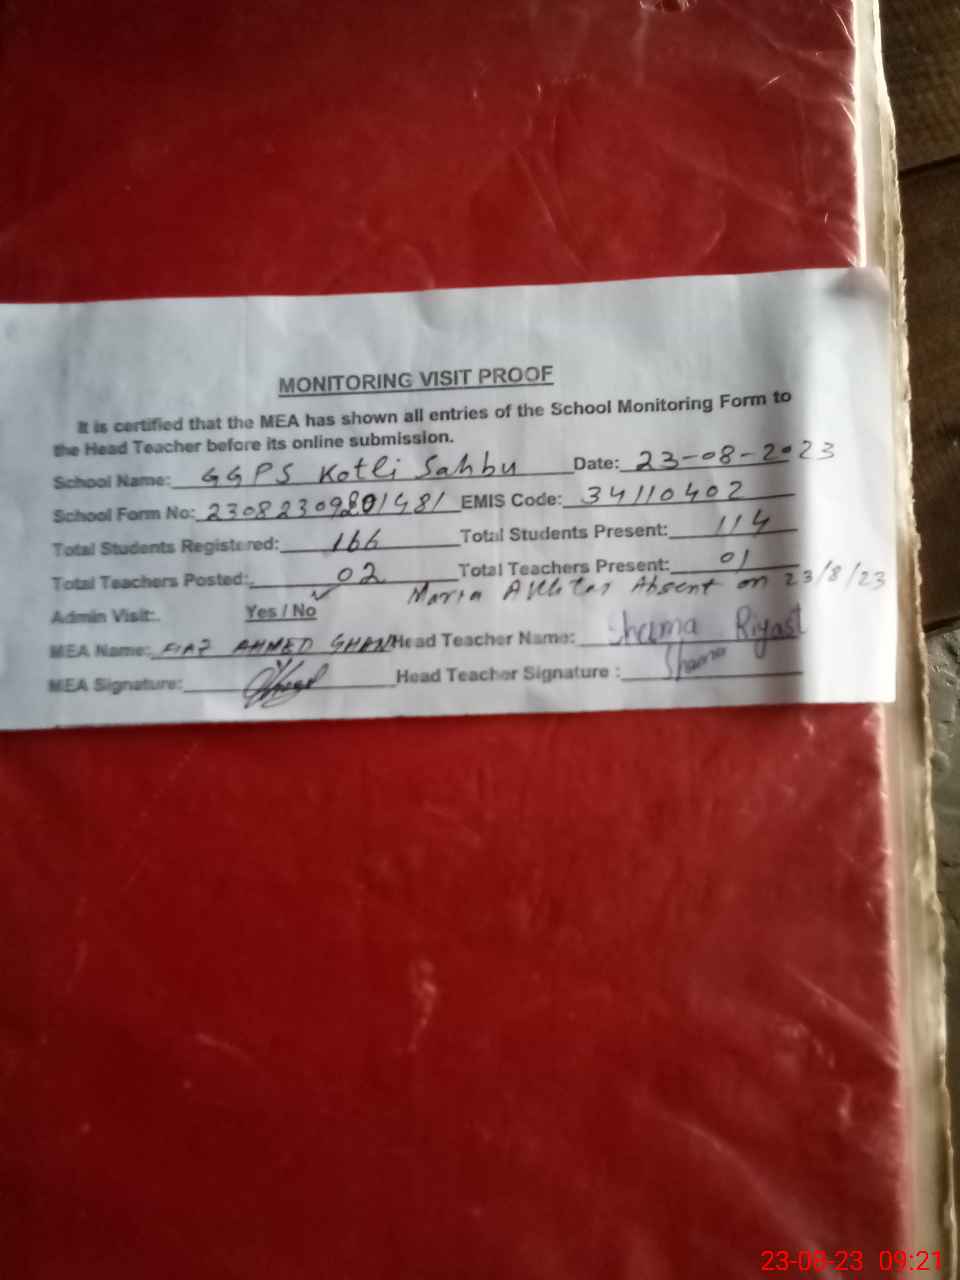 MONITORING VISIT PROOF
It is certified that the MEA has shown all entries of the School Monitoring Form to
the Head Teacher before its online submission.
School Name: GGPS Kotli Sahbu Date: 23-08-2023
School Form No: EMIS Code: 34110402
Total Students Registered: 166 Total Students Present: 114
Total Teachers Posted: 02 Total Teachers Present: 01
Maria Akhtar Absent on 23/8/23
Admin Visit: Yes / No
MEA Name: FIAZ AHMED Head Teacher Name: Shama Riyast
MEA Signature: Head Teacher Signature : Shama
23-08-23 09:21